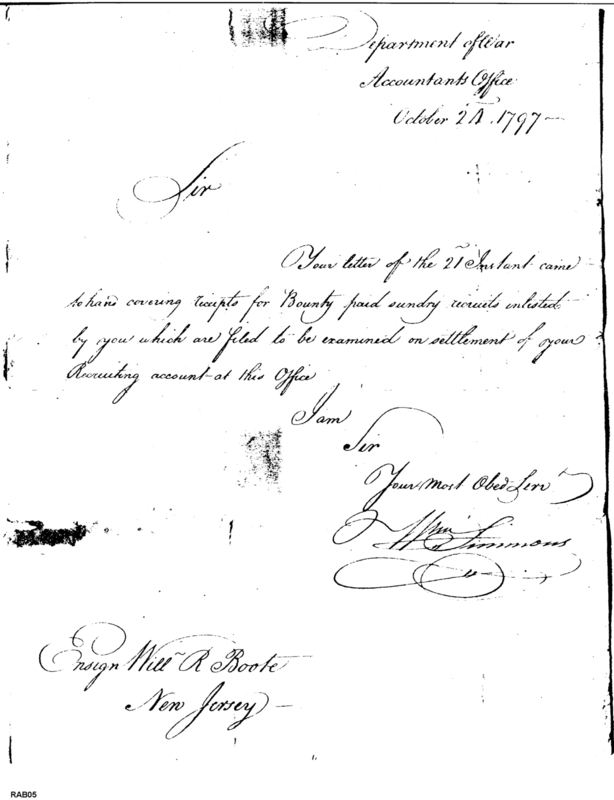 Department of War
Accountants Office
October 24. 1797
Sir
Your letter of the 21 Instant came
to hand covering receipts for Bounty paid sundry recruits inlisted
by you which are filed to be examined on settlement of your
Recruiting account at this Office
I am
Sir
Your Most Obed Servt
Wm Simmons
Ensign Willm R Boote
New Jersey
RAB05